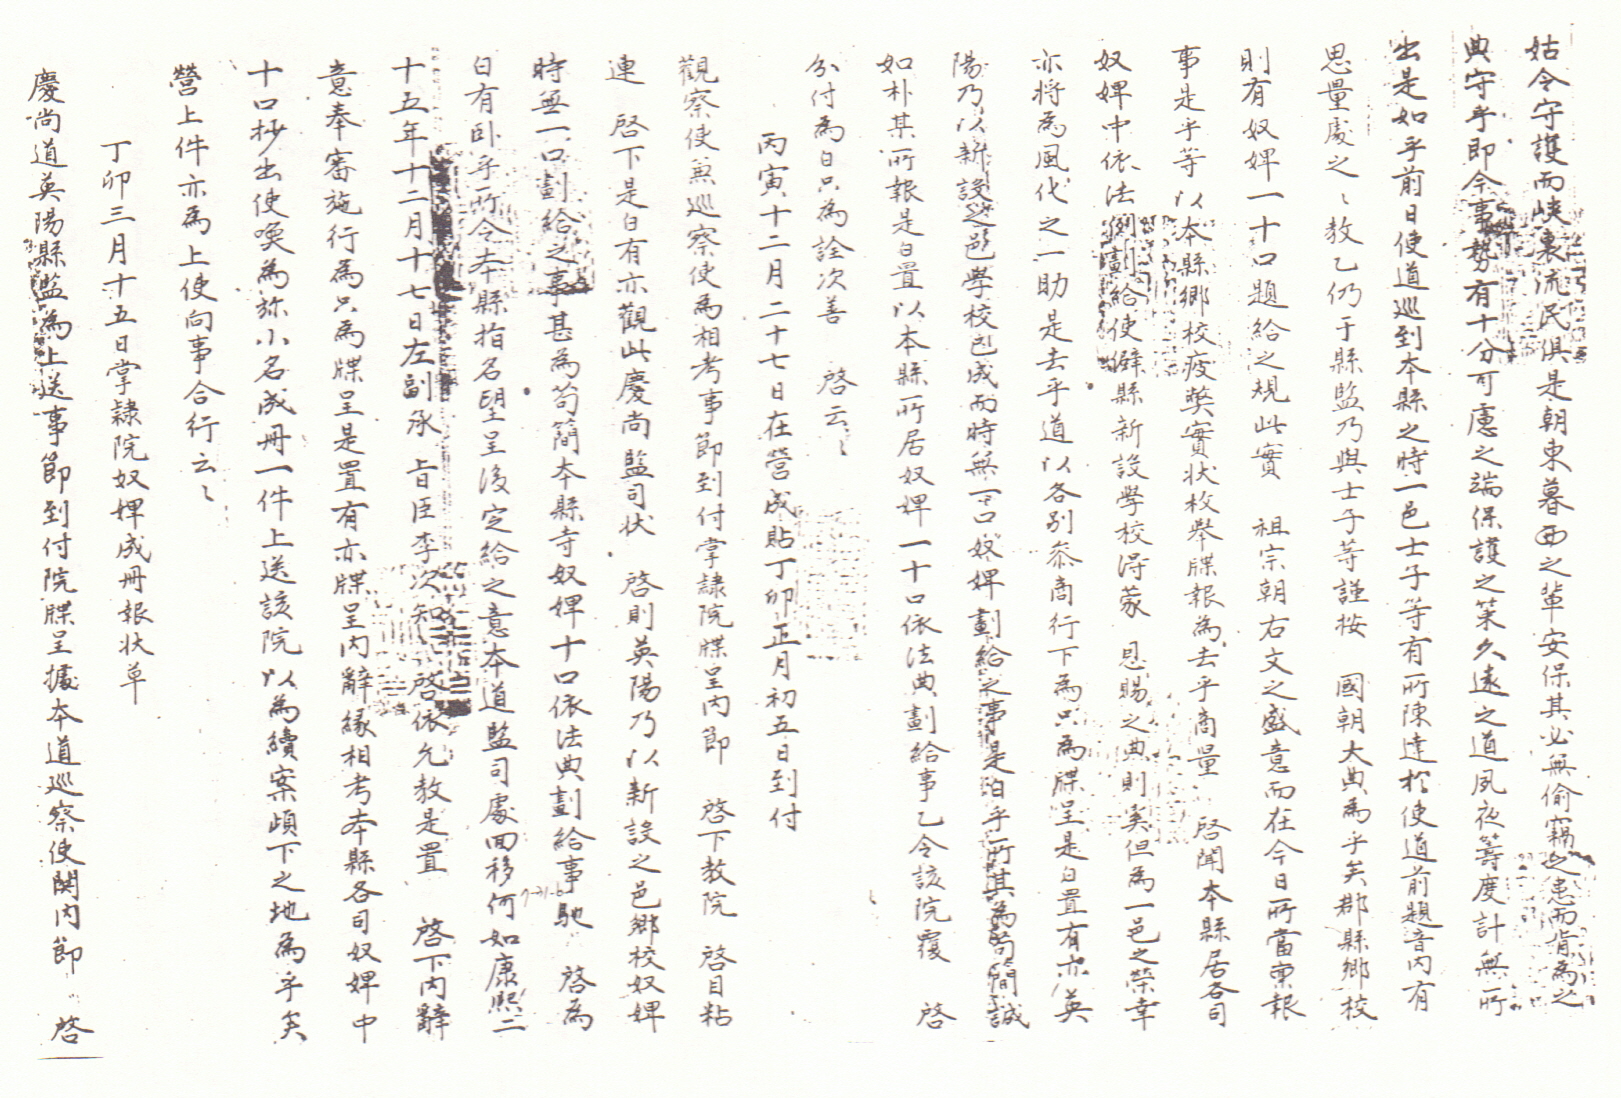 姑令守護而峽裏流民俱是朝東暮西之輩安保其必無偷竊之患而肯爲之
典守乎即今事勢有十分可慮之端保護之策久遠之道夙夜籌度計無所
出是如乎前日使道巡到本縣之時一邑士子等有所陳達於使道前題音內有
思量處之〻教乙仍于縣監乃與士子等謹按 國朝大典爲乎矣郡縣鄉校
則有奴婢一十口題給之規此實 祖宗朝右文之盛意而在今日所當稟報
事是乎等以本縣鄉校疲弊實狀枚舉牒報爲去乎商量 啓聞本縣居各司
奴婢中依法例劃給使僻縣新設學校得蒙 恩賜之典則奚但爲一邑之榮幸
亦將爲風化之一助是去乎道以各別叅商行下爲只爲牒呈是白置有亦英
陽乃以新設之邑學校已成而時無一口奴婢劃給之事是白乎所其爲苟簡誠
如朴其所報是白置以本縣所居奴婢一十口依法典劃給事乙令該院覆 啓
分付爲白只爲詮次善 啓云〻
丙寅十二月二十七日在營成貼丁卯正月初五日到付
觀察使兼巡察使爲相考事節到付掌隷院牒呈內節 啓下教院 啓目粘
連 啓下是白有亦觀此慶尚監司狀 啓則英陽乃以新設之邑鄉校奴婢
時無一口劃給之事甚爲苟簡本縣寺奴婢十口依法典劃給事馳 啓爲
白有卧乎所令本縣指名望呈後定給之意本道監司處回移何如康熙二
十五年十二月十七日左副承 旨臣李次知 啓依允教是置 啓下內辭
意奉審施行爲只爲牒呈是置有亦牒呈內辭緣相考本縣各司奴婢中
十口抄出使喚爲旀小名成冊一件上送該院以爲續案頉下之地爲乎矣
營上件亦爲上使向事合行云〻
丁卯三月十五日掌隷院奴婢成冊報狀草
慶尚道英陽縣監爲上送事節到付院牒呈據本道巡察使関內節 啓